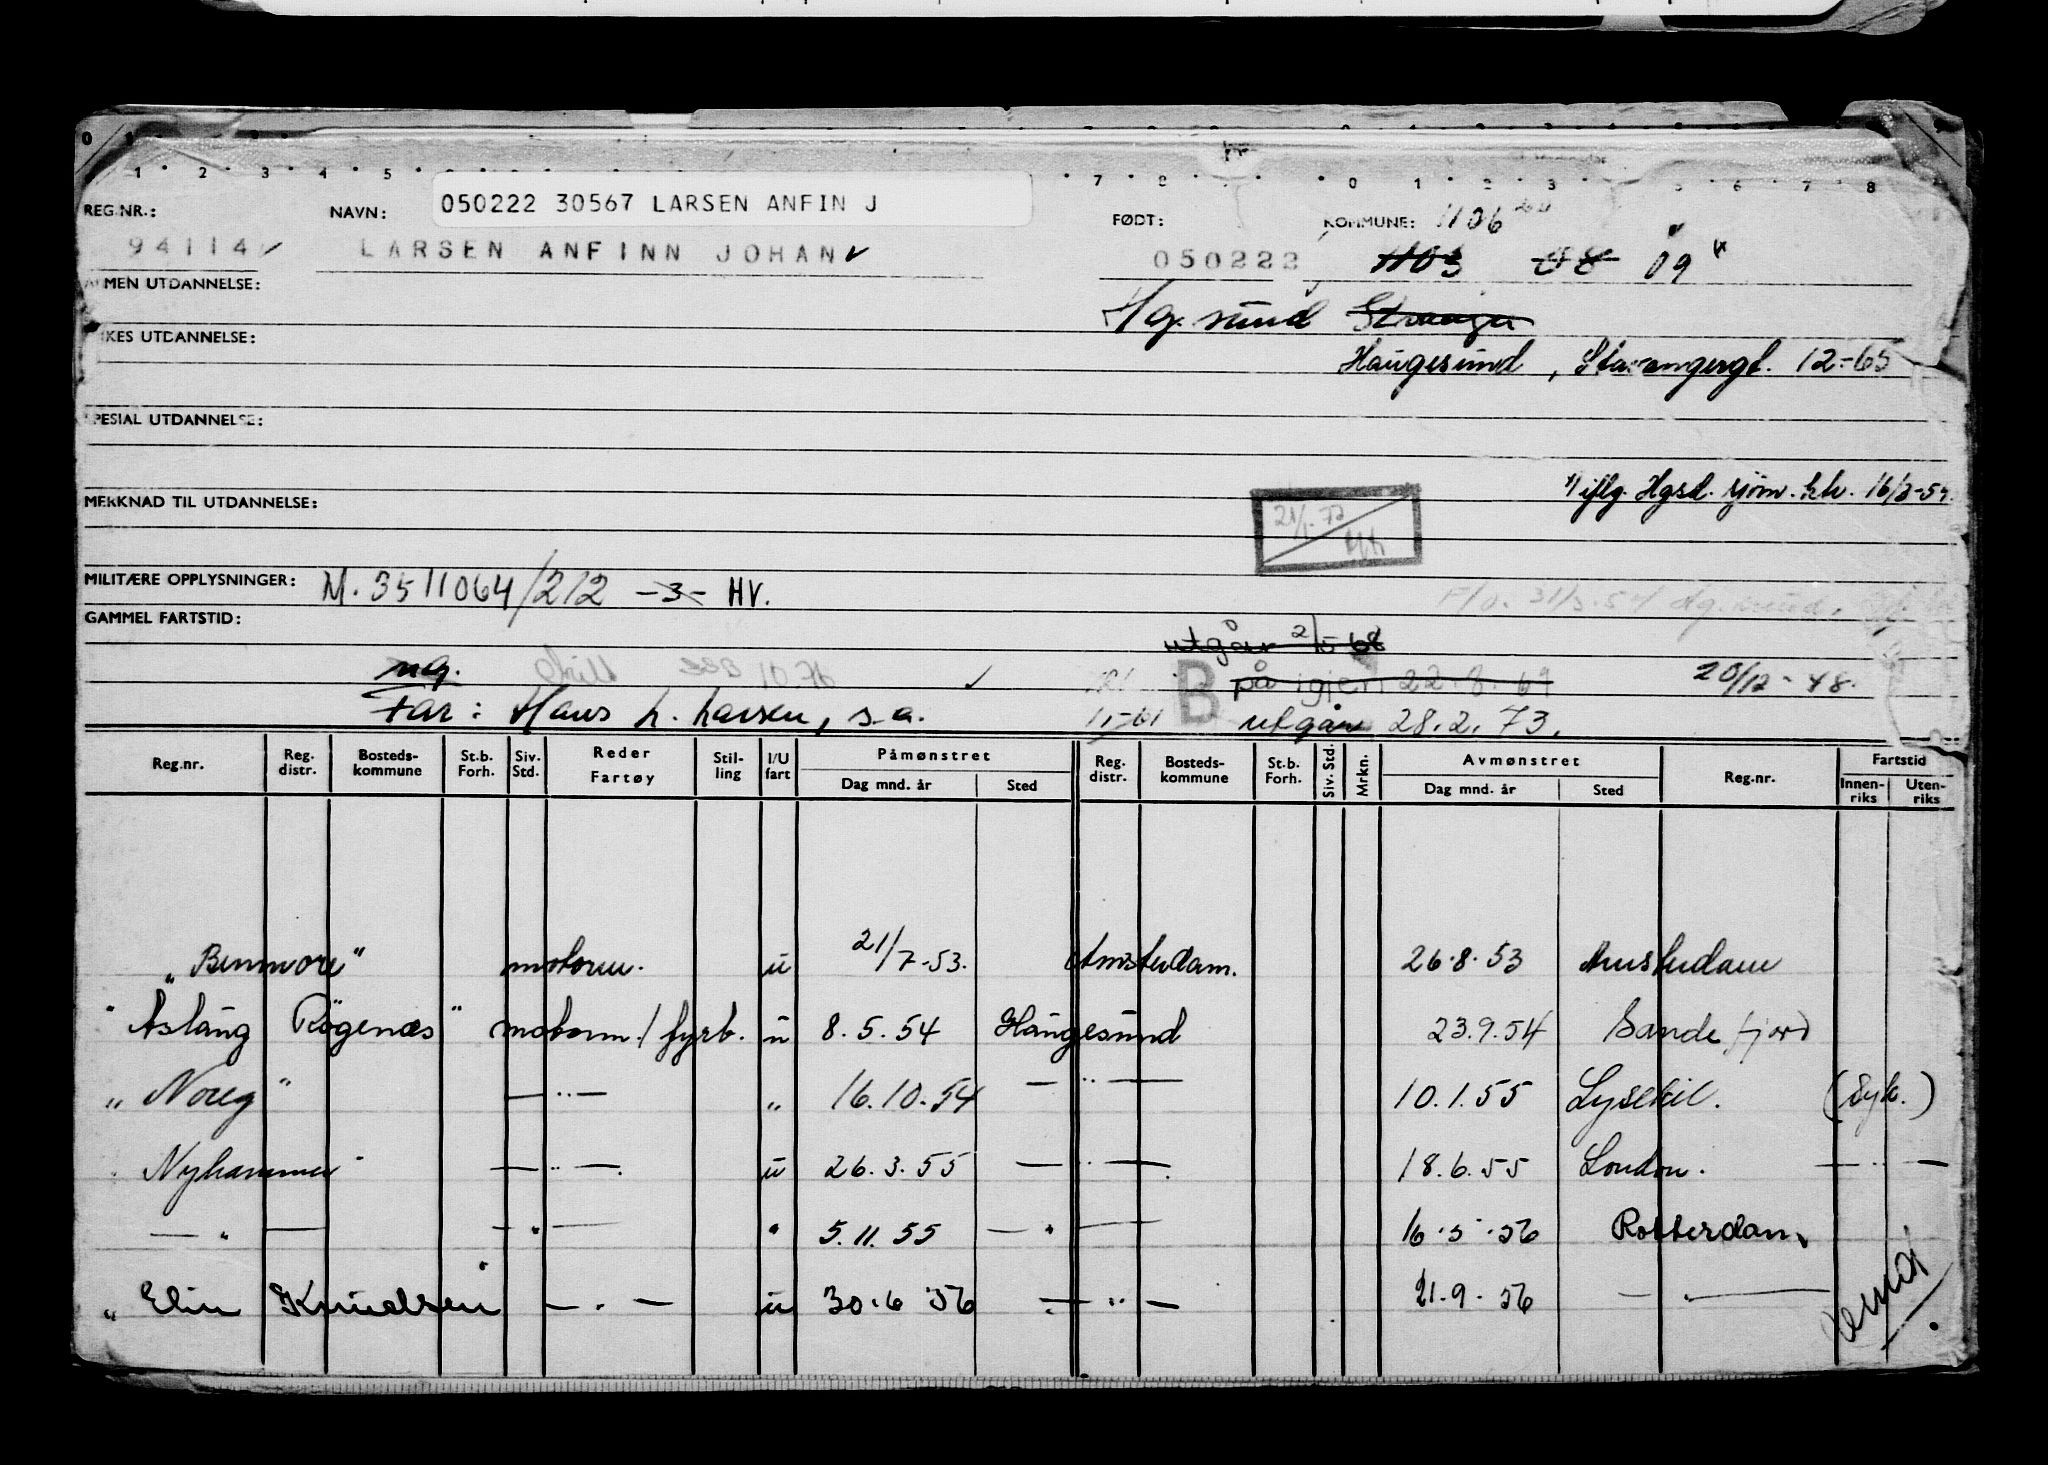 050222 30567 LARSEN ANFIN J
REG.NR.: NAVN: FØDT: KOMMUNE: 1106
94114 LARSEN ANFINN JOHAN 050222 1103 08 09
ALMEN UTDANNELSE:
Hg.sund Stavanger
YRKES UTDANNELSE:
Haugesund, Stavangergt. 12-65
SPESIAL UTDANNELSE:
iflg. Hgsd. sjøm.
MERKNAD TIL UTDANNELSE:
21/1-72
MILITÆRE OPPLYSNINGER: M. 3511064/212 -3- HV.
GAMMEL FARTSTID:
utgår 2/5 68
ug. 10.76 B på igjen 22.8.69 20/12-48.
Far: Hans L. Larsen, s.a. 11-61 utgår 28.2.73.
Reg.nr. Reg. distr. Bosteds-kommune St.b. Forh. Siv. Std. Reder Fartøy Stil-ling I/U fart Påmønstret Dag mnd. år Sted Reg. distr. Bosteds-kommune St.b. Forh. Siv. Std. Mrkn. Avmønstret Dag mnd. år Sted Reg.nr. Fartstid Innen-riks Uten-riks
"Benmore" motorm. u 21/7-53. Amsterdam. 26.8.53 Amsterdam
"Aslaug Røgenæs" motorm./fyrb. u 8.5.54 Haugesund 23.9.54 Sandefjord
"Noreg" —"— " 16.10.54 —"— 10.1.55 Lysekil. (Syk.)
"Nyhammer" —"— u 26.3.55 —"— 18.6.55 London. —"—
—"— —"— " 5.11.55 —"— 16.5.56 Rotterdam
"Elin Knudsen" —"— u 30.6.56 —"— 21.9.56 —"—